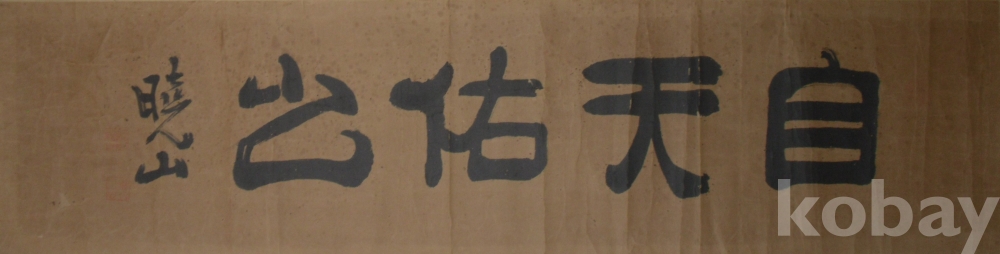 自天佑之
曉山
kobay